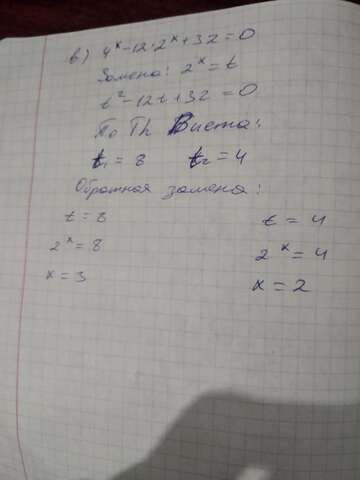 в) 4ˣ-12·2ˣ+32=0
Замена: 2ˣ=t
t²-12t+32=0
По Th Виета:
t₁=8 t₂=4
Обратная замена:
t=8 t=4
2ˣ=8 2ˣ=4
x=3 x=2